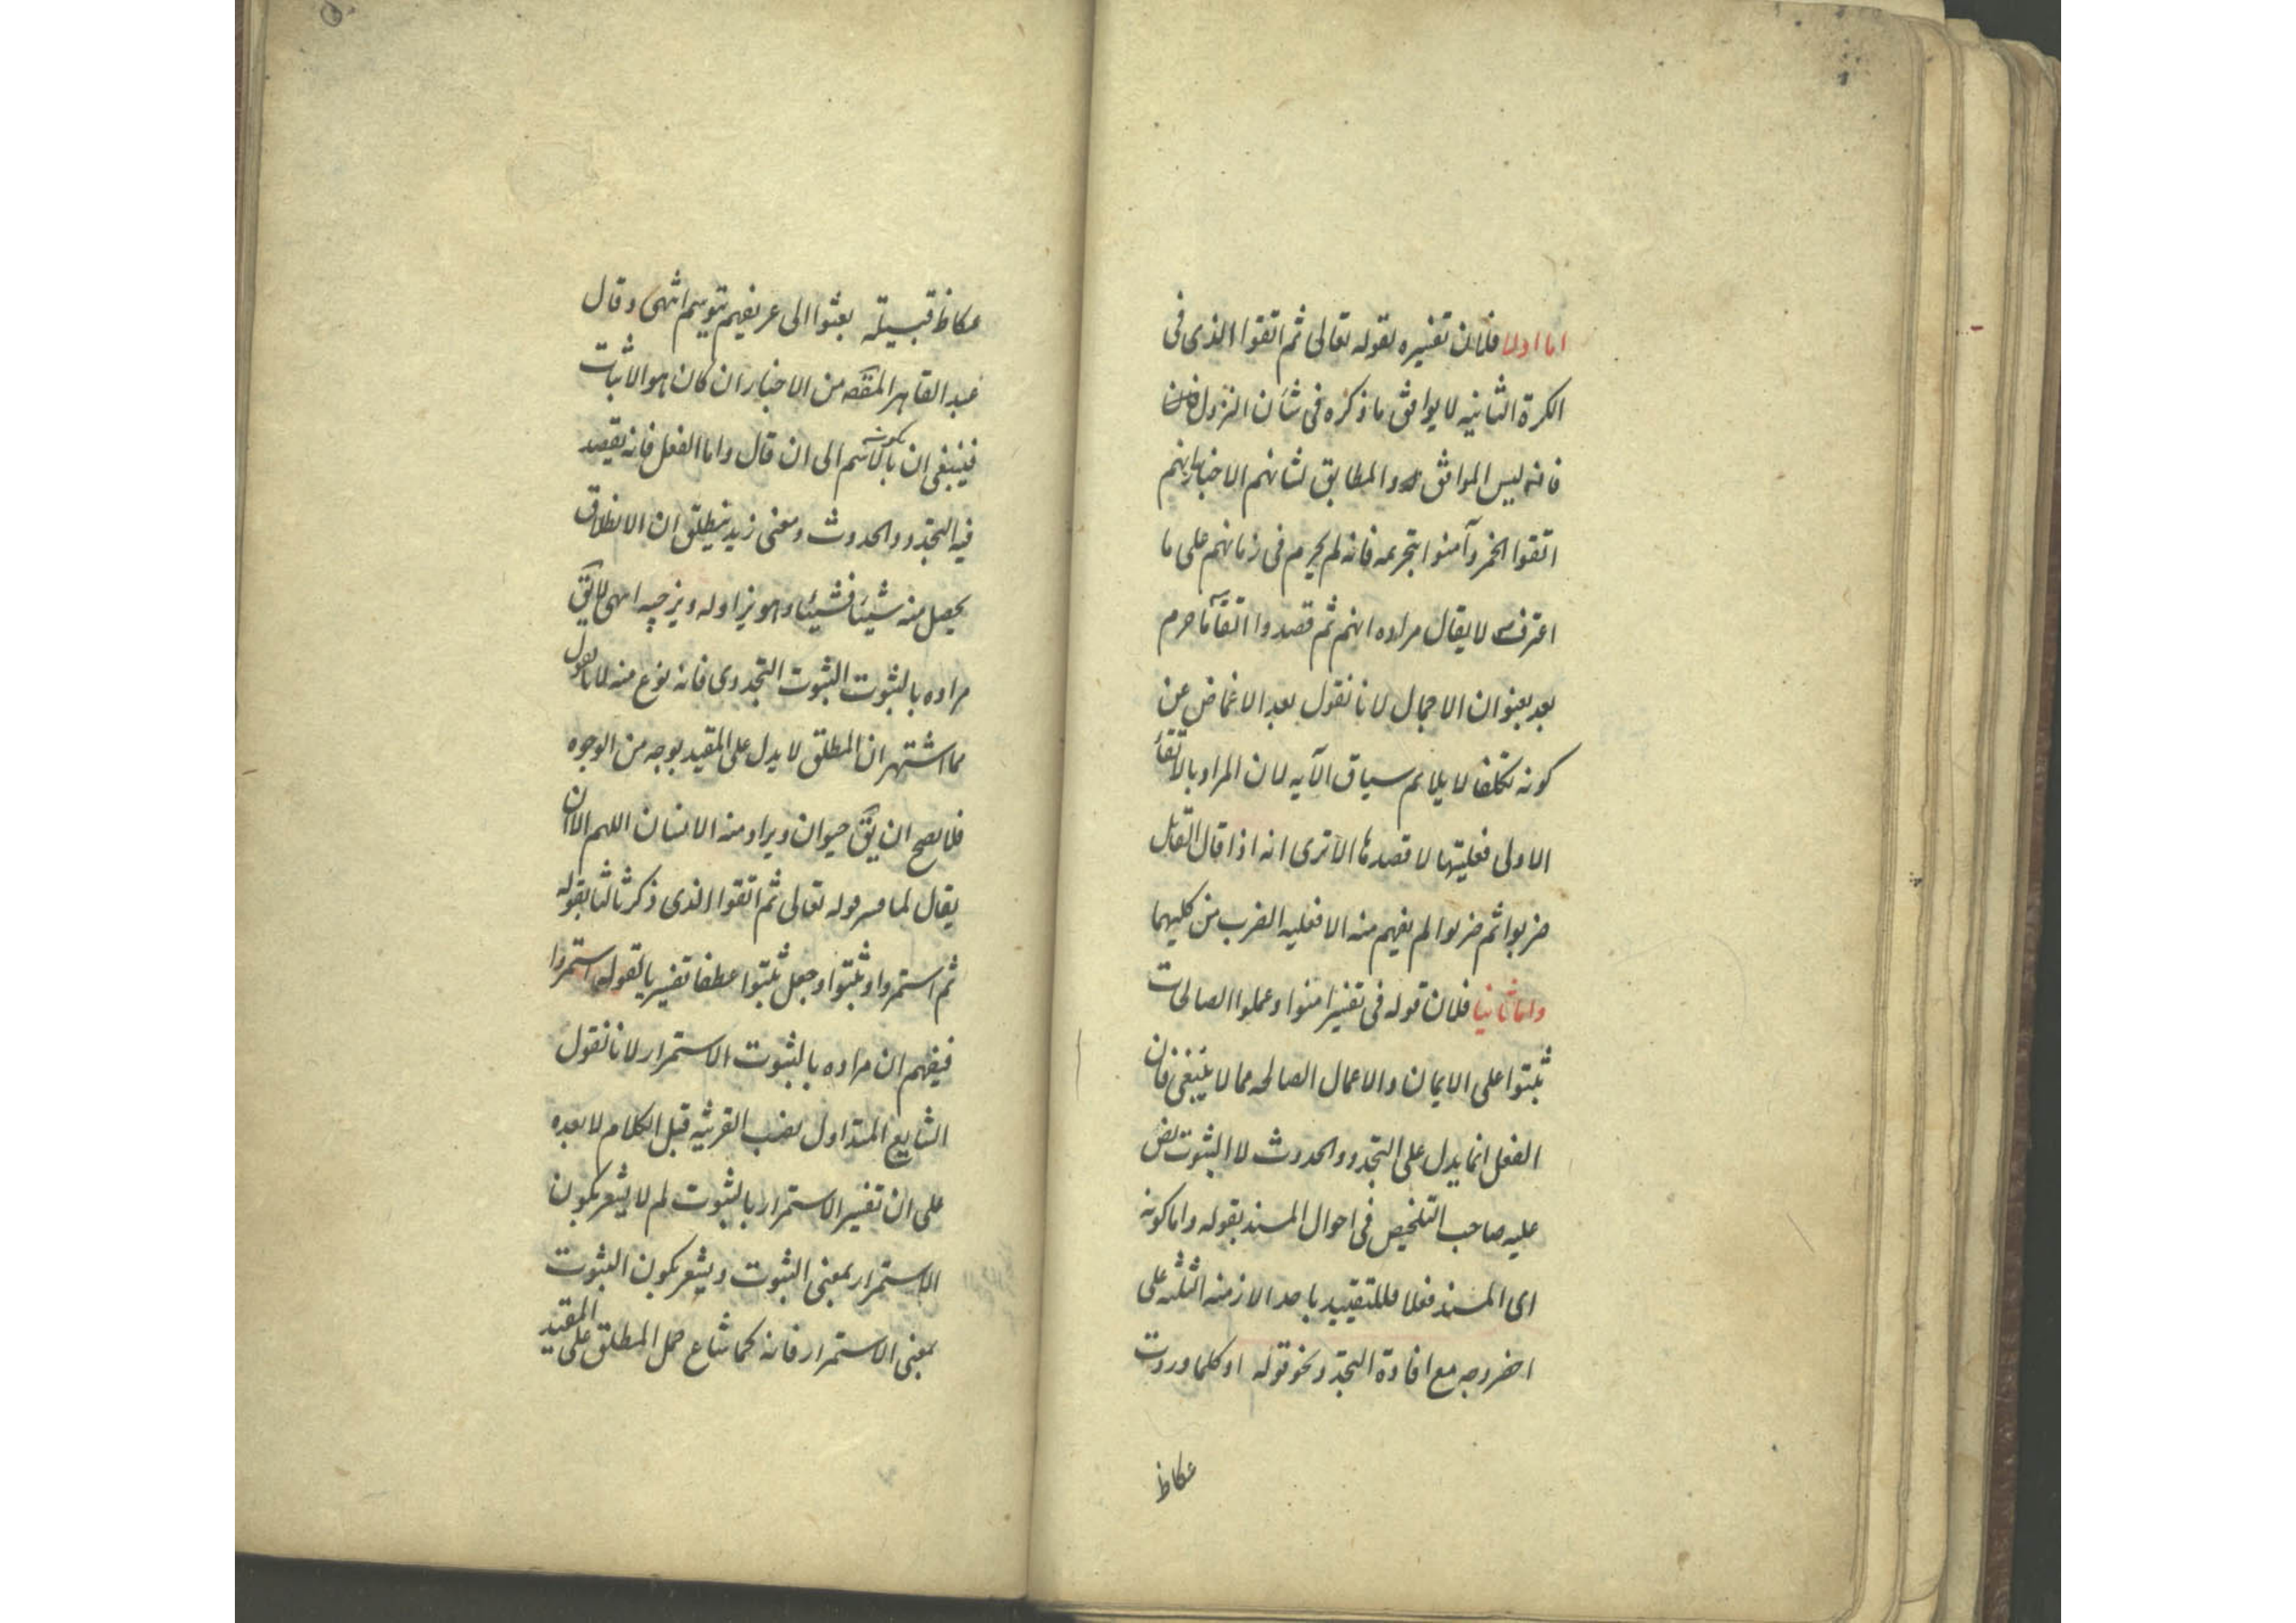 اما اولا فلان تفسيره لقوله تعالى ثم اتقوا الذى فى
الكرة الثانيه لا يوافق ما ذكره فى شأن النزول
فانه ليس الموافق والمطابق لشانهم الاخبار بانهم
اتقوا الخمر وآمنوا بتحريمه فانه لم يحرم فى زمانهم على ما
اعترف لا يقال مراده انهم ثم قصدوا اتقآء ما حرم
بعد بعنوان الاجمال لانا نقول بعد الاغماض عن
كونه تكلفا لا يلائم سياق الآيه لان المراد بالاتقآء
الاولى فعليتها لا قصدها الا ترى انه اذا قال القائل
ضربوا ثم ضربوا لم يفهم منه الا فعليه الضرب من كليهما
واما ثانيا فلان قوله فى تفسير امنوا وعملوا الصالحات
ثبتوا على الايمان والاعمال الصالحه مما لا ينبغى فان
الفعل انما يدل على التجدد والحدوث لا الثبوت نص
عليه صاحب التلخيص فى احوال المسند بقوله واما كونه
اى المسند فعلا فللتقييد باحد الازمنه الثلثه على
اخصر وجه مع افادة التجدد نحو قوله او كلما وردت
عكاظ
عكاظ قبيلة بعثوا الى عريفهم يتوسم انتهى وقال
عبد القاهر المقصد من الاخبار ان كان هو الاثبات
فينبغى ان يكون بالاسم الى ان قال واما الفعل فانه يقصد
فيه التجدد والحدوث ومعنى زيد ينطلق ان الانطلاق
يحصل منه شيئا فشيئا وهو يزاوله ويزجيه انتهى لا يق
مراده بالثبوت الثبوت التجددى فانه نوع منه لانا نقول
مما اشتهر ان المطلق لا يدل على المقيد بوجه من الوجوه
فلا يصح ان يق حيوان ويراد منه الانسان اللهم الا ان
يقال لما فسر قوله تعالى ثم اتقوا الذى ذكر ثالثا بقوله
ثم استمروا وثبتوا وجعل ثبتوا عطفا تفسيريا لقوله استمروا
فيفهم ان مراده بالثبوت الاستمرار لانا نقول
الشايع المتداول نصب القرينه قبل الكلام لا بعده
على ان تفسير الاستمرار بالثبوت لم لا يشعر بكون
الاستمرار بمعنى الثبوت ويشعر بكون الثبوت
بمعنى الاستمرار فانه كما شاع حمل المطلق على المقيد